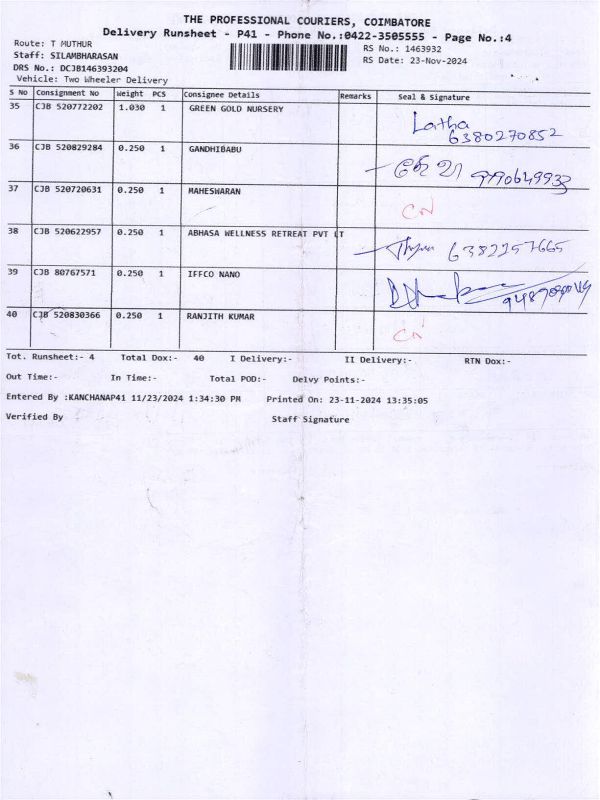 THE PROFESSIONAL COURIERS, COIMBATORE
Delivery Runsheet - P41 - Phone No.:0422-3505555 - Page No.:4
Route: T MUTHUR
Staff: SILAMBHARASAN
DRS No.: DCJB146393204
Vehicle: Two Wheeler Delivery
RS No.: 1463932
RS Date: 23-Nov-2024
S No Consignment No Weight PCS Consignee Details Remarks Seal & Signature
35 CJB 520772202 1.030 1 GREEN GOLD NURSERY Latha
6380270852
36 CJB 520829284 0.250 1 GANDHIBABU
37 CJB 520720631 0.250 1 MAHESWARAN
38 CJB 520622957 0.250 1 ABHASA WELLNESS RETREAT PVT LT 6382257665
39 CJB 80767571 0.250 1 IFFCO NANO
40 CJB 520830366 0.250 1 RANJITH KUMAR
Tot. Runsheet:- 4 Total Dox:- 40 I Delivery:- II Delivery:- RTN Dox:-
Out Time:- In Time:- Total POD:- Delvy Points:-
Entered By :KANCHANAP41 11/23/2024 1:34:30 PM Printed On: 23-11-2024 13:35:05
Verified By Staff Signature